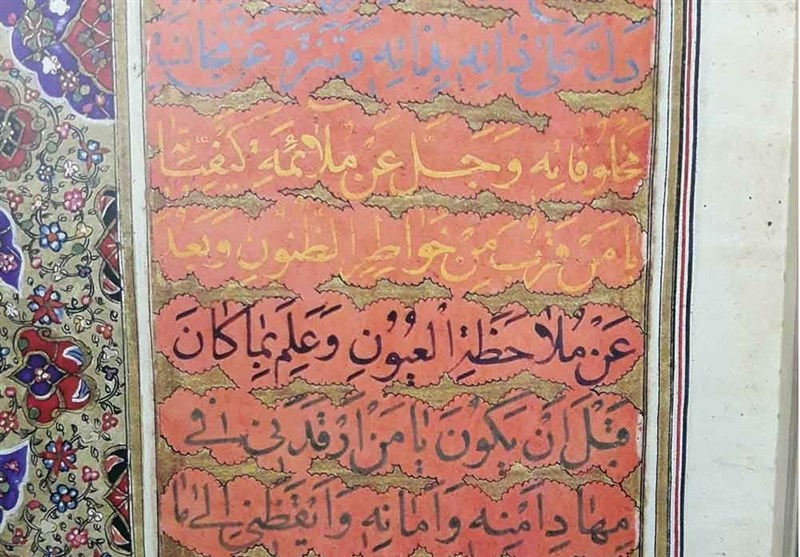 دَلَّ عَلىٰ ذٰاتِهِ بِذٰاتِهِ وَتَنَزَّهَ عَنْ مُجٰانَسَةِ
مَخْلُوقٰاتِهِ وَجَلَّ عَنْ مُلٰائَمَةِ كَيْفِيّٰاتِهِ
يٰا مَنْ قَرُبَ مِنْ خَوٰاطِرِ الظُّنُونِ وَبَعُدَ
عَنْ مُلٰاحَظَةِ الْعُيُونِ وَعَلِمَ بِمٰا كٰانَ
قَبْلَ اَنْ يَكُونَ يٰا مَنْ اَرْقَدَنى فى
مِهٰادِ اَمْنِهِ وَاَمٰانِهِ وَاَيْقَظَنى اِلىٰ مٰا